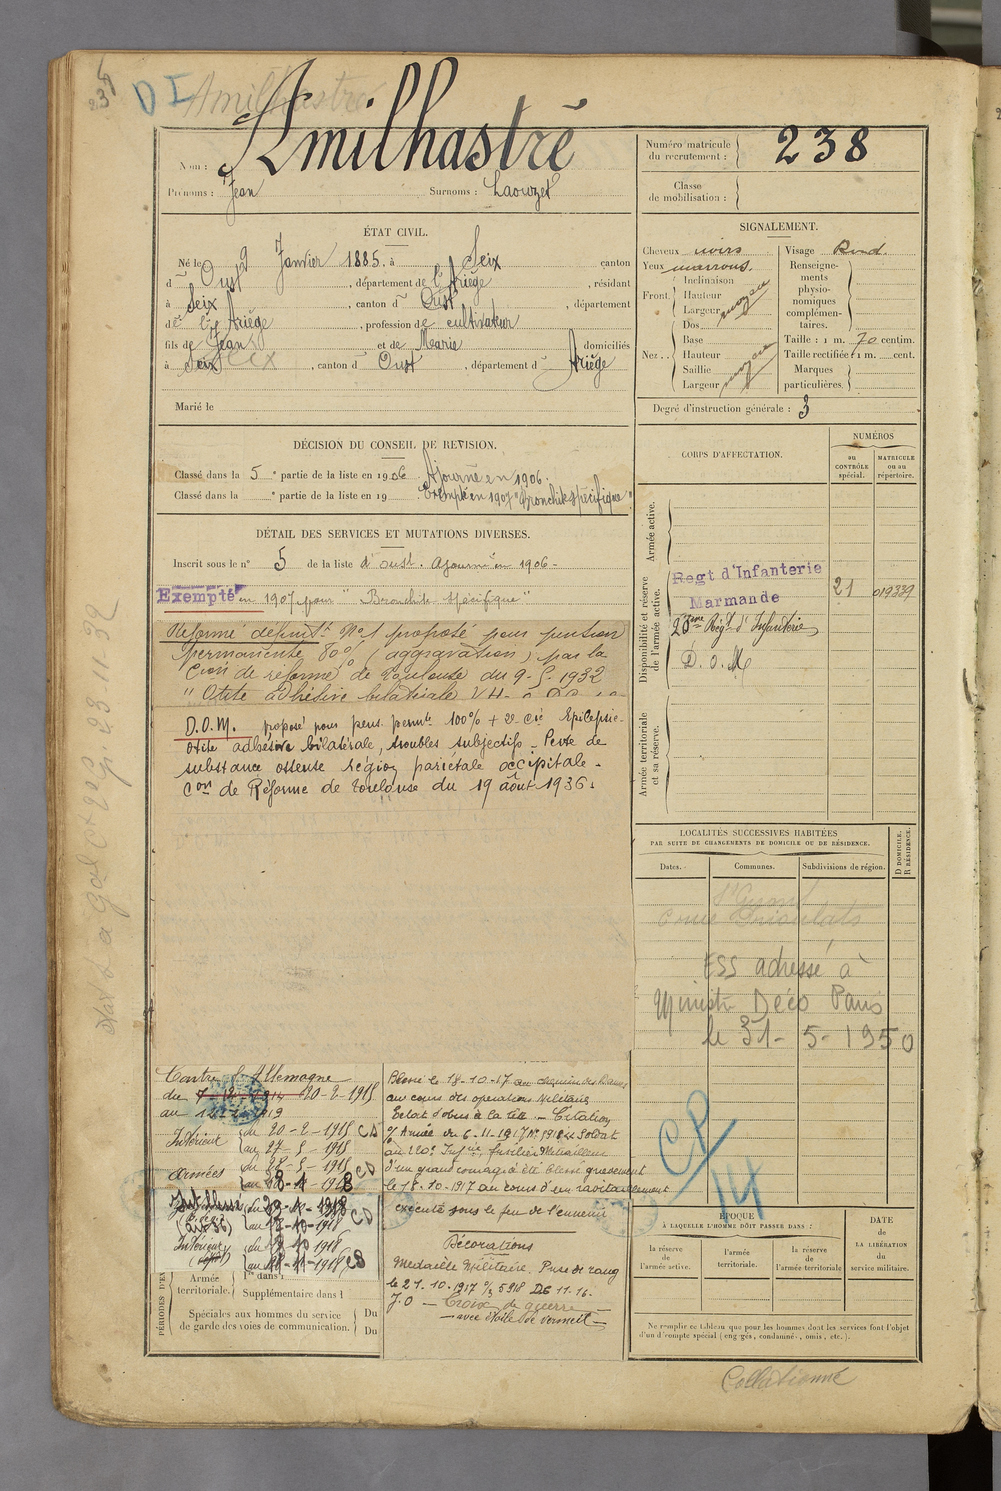 238
D I Amilhastre
Nom : Amilhastre
Prénoms : Jean Surnoms : Laouzet
Numéro matricule du recrutement : 238
Classe de mobilisation :
ÉTAT CIVIL.
Né le 9 Janvier 1885, à Seix canton
d' Oust, département de l'Ariège, résidant
à Seix, canton d' Oust, département
de l'Ariège, profession de cultivateur
fils de Jean et de Marie domiciliés
à Seix, canton d' Oust, département d' Ariège
Marié le
SIGNALEMENT.
Cheveux noirs
Yeux marrons
Front. Inclinaison
Hauteur
Largeur moyen
Nez.. Dos
Base
Hauteur
Saillie
Largeur moyen
Visage Rond
Renseigne-
ments
physio-
nomiques
complémen-
taires.
Taille : 1 m. 70 centim.
Taille rectifiée : 1 m. cent.
Marques
particulières.
Degré d'instruction générale : 3
DÉCISION DU CONSEIL DE REVISION.
Classé dans la 5e partie de la liste en 1906 Ajourné en 1906.
Classé dans la e partie de la liste en 19 Exempté en 1907 "Bronchite spécifique"
DÉTAIL DES SERVICES ET MUTATIONS DIVERSES.
Inscrit sous le n° 5 de la liste d'oust. Ajourné en 1906 -
Exempté en 1907 pour "Bronchite spécifique"
Réformé définitt N°1 proposé pour pension
permanente 80% aggravation, par la
Cion de réforme de Toulouse du 9-5-1932
" Otite adhésive bilatérale
D.O.M. proposé pour pens. permte 100% + Epilepsie -
otite adhésive bilatérale, troubles subjectifs - Perte de
substance osseuse région pariétale occipitale -
Con de Réforme de Toulouse du 19 août 1936.
CORPS D'AFFECTATION.
NUMÉROS
au CONTRÔLE spécial.
MATRICULE ou au répertoire.
Armée active.
Disponibilité et réserve de l'armée active.
Regt d'Infanterie
Marmande 21 019339
20eme Régt d'Infanterie
D. O. M
Armée territoriale et sa réserve.
LOCALITÉS SUCCESSIVES HABITÉES
PAR SUITE DE CHANGEMENTS DE DOMICILE OU DE RÉSIDENCE.
Dates. Communes. Subdivisions de région. D DOMICILE. R RÉSIDENCE.
ESS adressé à
Ministre Déco Paris
le 31-5-1950
CP
14
Contre l'Allemagne
du 7-12-1914 20-2-1915
au 1919
Intérieur du 20-2-1915 CD
au 27-5-1915
Armées du 28-5-1915 CD
au 1918
du 1918 CD
au 10-1918
Intérieur du 1918
au 11-1918 CD
Blessé le 18-10-17 au chemin des Dames
au cours des opérations Militaires
Eclat d'obus à la tête - Citation
Armée du 6-11-1917 Soldat
au 220e Infrie, fusilier Mitrailleur
d'un grand courage a été blessé gravement
le 18-10-1917 au cours d'un ravitaillement
exécuté sous le feu de l'ennemi
Décorations
Médaille Militaire, Prise de rang
le 21.10.1917
J.O - Croix de guerre -
- avec étoile de vermeil -
PÉRIODES D'EX
Armée territoriale. 1re dans l
Supplémentaire dans l
Spéciales aux hommes du service Du
de garde des voies de communication. Du
ÉPOQUE
À LAQUELLE L'HOMME DOIT PASSER DANS :
la réserve de l'armée active.
l'armée territoriale.
la réserve de l'armée territoriale
DATE
DE
LA LIBÉRATION
du
service militaire.
Ne remplir ce tableau que pour les hommes dont les services font l'objet
d'un décompte spécial (engagés, condamnés, omis, etc.).
Collationné